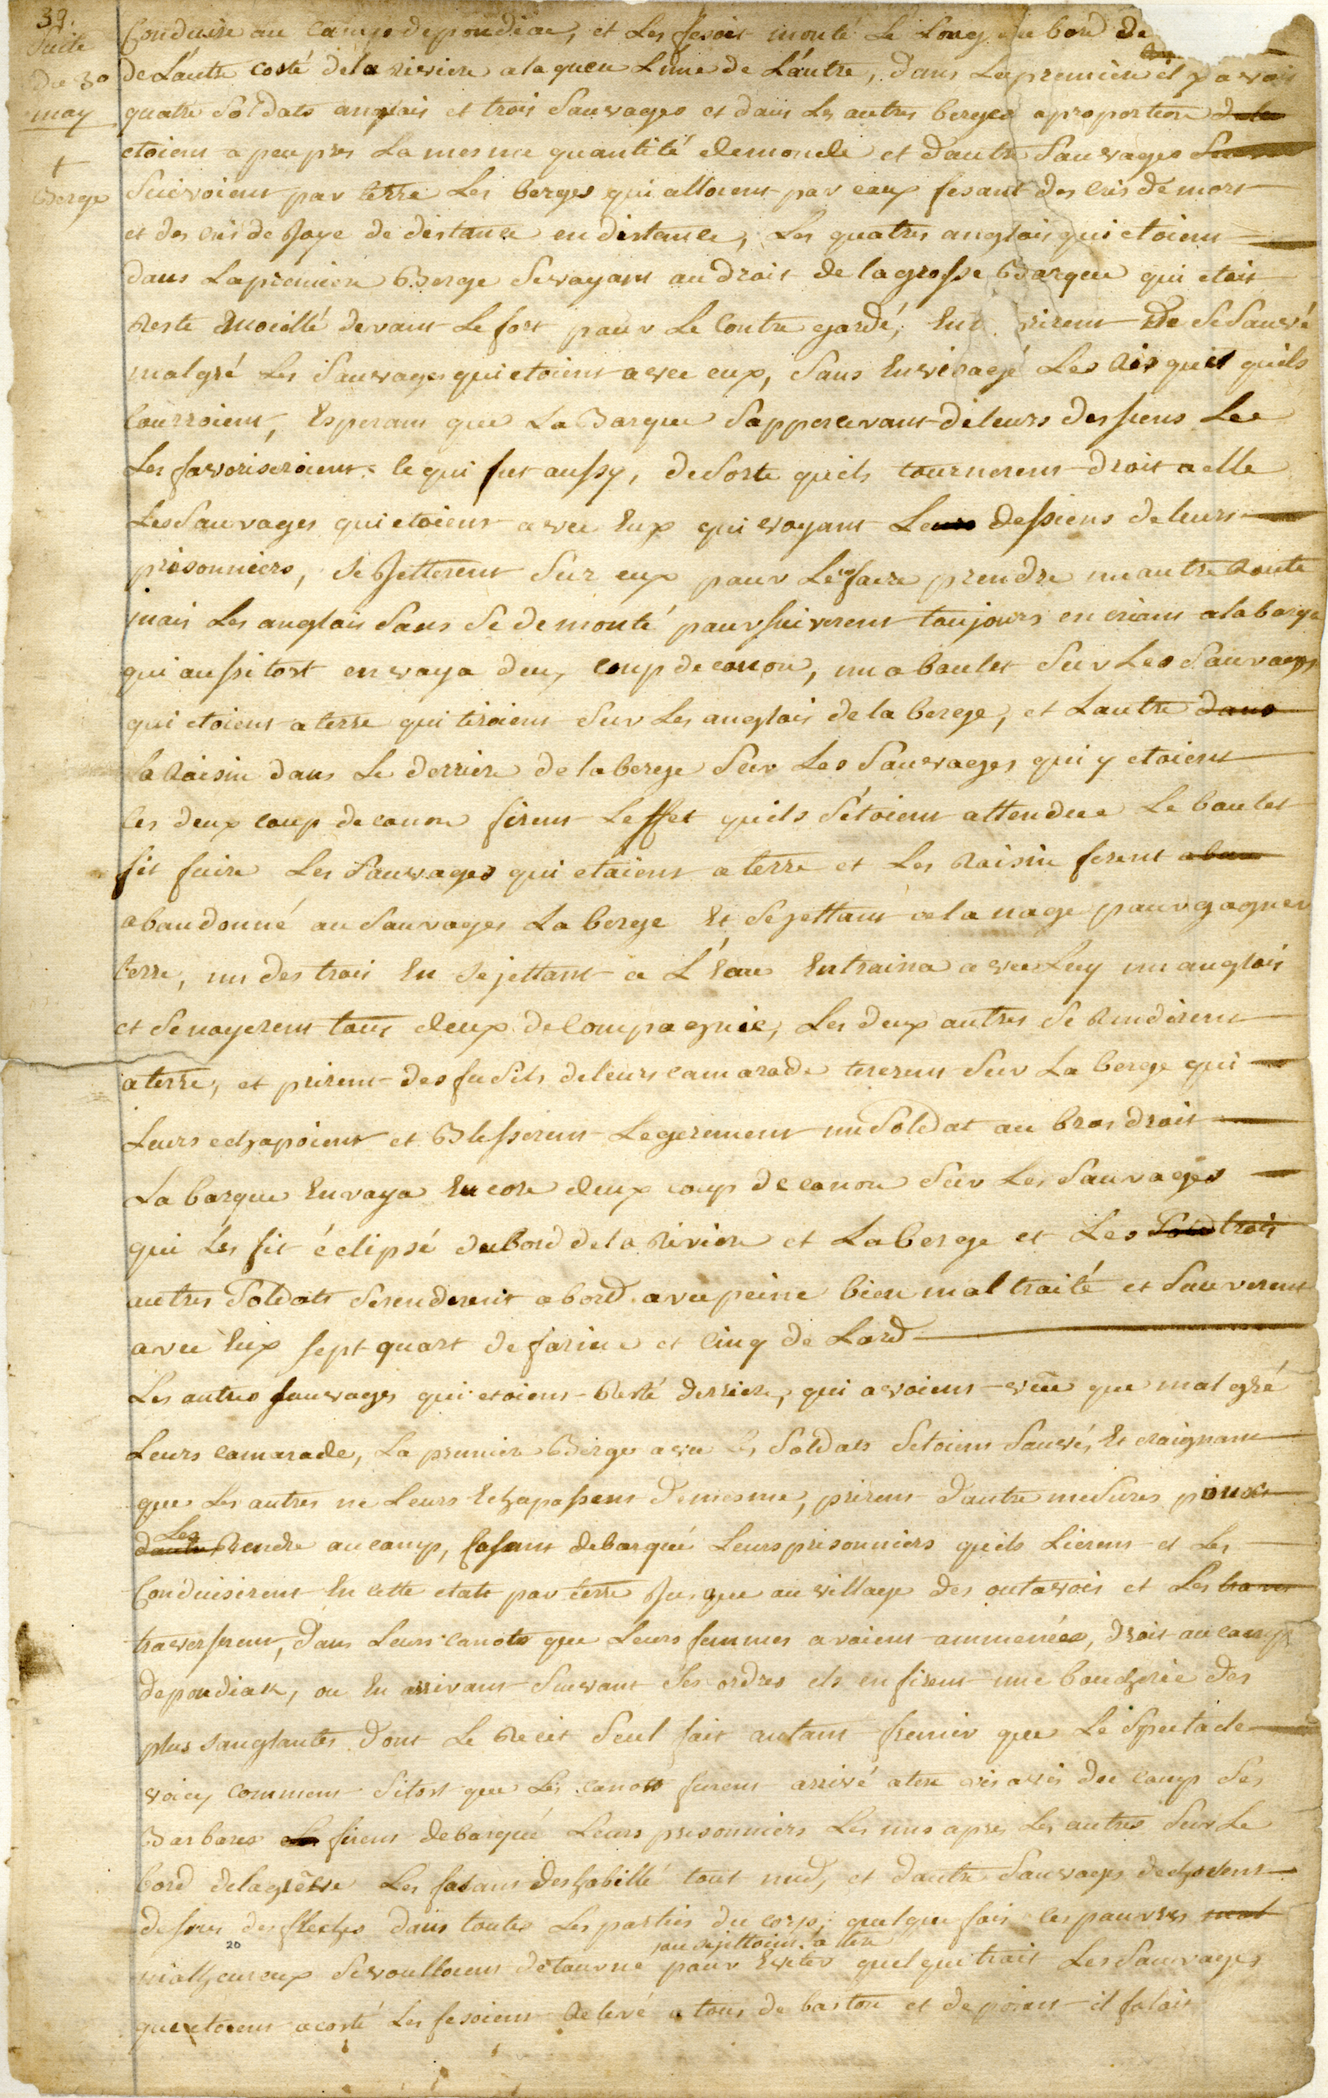 39.
Suite
du 30
may
+
Berge
Conduire au Camp de pondiac, et Les fesoit monté Le Long du bord de
de L'autre costé dela riviere a la queu L'une de L'autre, dans La premiere il y avoit
quatre Soldats anglais et trois Sauvages et dans Les autres berges a proportion
etoient a peu pres La mesme quantité de monde et d'autre Sauvages
Suivoient par terre Les berges qui alloient par eaux fesant des Cris de mort
et des cris de Joye de distance en distance, Les quatres anglois qui etoient
dans La premiere Berge Se voyant au droit de la grosse Barque qui etoit
Resté Moüillé devant Le fort pour Le Contre gardé, De Se Sauvé
malgré Les Sauvages qui etoient avec eux, Sans Envisagé Les Risques quils
Courroient, Esperant que La Barque S'appercevant de leurs dessiens Le
Les favoriseroient ce qui fut aussy, de Sorte quils tournerent droit a elle
Les Sauvages qui etoient avec Eux qui voyant Leurs dessiens de leurs
prisonniers, Se Jetterent Sur eux pour Les faire prendre un autre Route
mais Les anglois Sans Se demonté poursuiverent toujours en criant a la barque
qui aussitost envoya deux coup de canon, un a boulet Sur Les Sauvages
qui etoient a terre qui tiroient Sur Les anglois de la berege, et L'autre dans
la Raisin dans Le derriere de la berege Sur Les Sauvages qui y etoient
Les deux coup de canon firent L'effet quils S'etoient attendue Le boulet
fit fuire Les Sauvages qui etoient a terre et Les Raisin firent aban
abandonné au Sauvages La berge Et Se jettant a la nage pour gagner
terre, un des trois En Se jettant a L'Eau Entraina avec Luy un anglois
et Se noyerent tous deux de Compagnie, Les deux autres Se Rendirent
a terre, et prirent des fusils de leurs camarade tirerent Sur La berege qui
Leurs echapoient et Blesserent Legerement un Soldat au bras droit
La barque Envoya Encore deux coup de canon Sur Les Sauvages
qui Les fit éclipsé du Bord de la Riviere et La berege et Les Sold trois
autres Soldats Serenderent a bord avec peine bien mal traité et Sauverent
avec Eux sept quart de farine et Cinq de Lard
Les autres sauvages qui etoient Resté derriere, qui avoient vüe que malgré
Leurs camarade, La premiere Berge avec Soldats Setoient Sauvés, Et craignant
que Les autres ne Leurs Echapassent de mesme, prirent d'autre mesures pour
Les
d'autre Rendre au camp, fasant debarqué Leurs prisonniers quils Lierent et Les
Conduisirent En cette etats par terre Jusque au village des outavois et Les traver
traverserent, dans Leurs canots que Leurs femmes avoient ammenées, droit au camp
de pondiak, ou En arrivant Suivant Ses ordres ils en firent une bouchérie des
plus sanglantes dont Le Recit Seul fait autant fremir que Le Spectacle
voicy comment Sitost que Les canots furent arrivé a terre vis a vis du camp Ses
Barbares firent debarqué Leurs prisonniers Les uns apres Les autres Sur Le
bord de la grêve Les fasant deshabillé tout nud, et d'autre Sauvages
dessus des fleches dans toutes Les parties du corps; quelque fois ces pauvres mal
20
ou Se jettoient a terre
malheureux Se voulloient detourné pour Eviter quelque trait Les Sauvages
qui etoient a costé Les fesoient Relevé a tous de baston et de poient il faloit